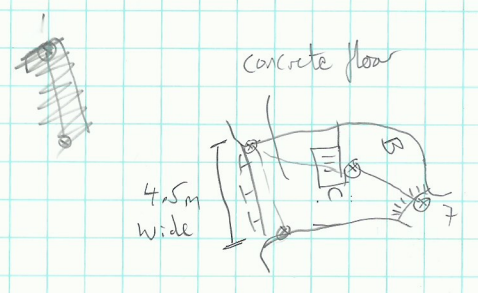 concrete floor
B
4.5m
wide
7